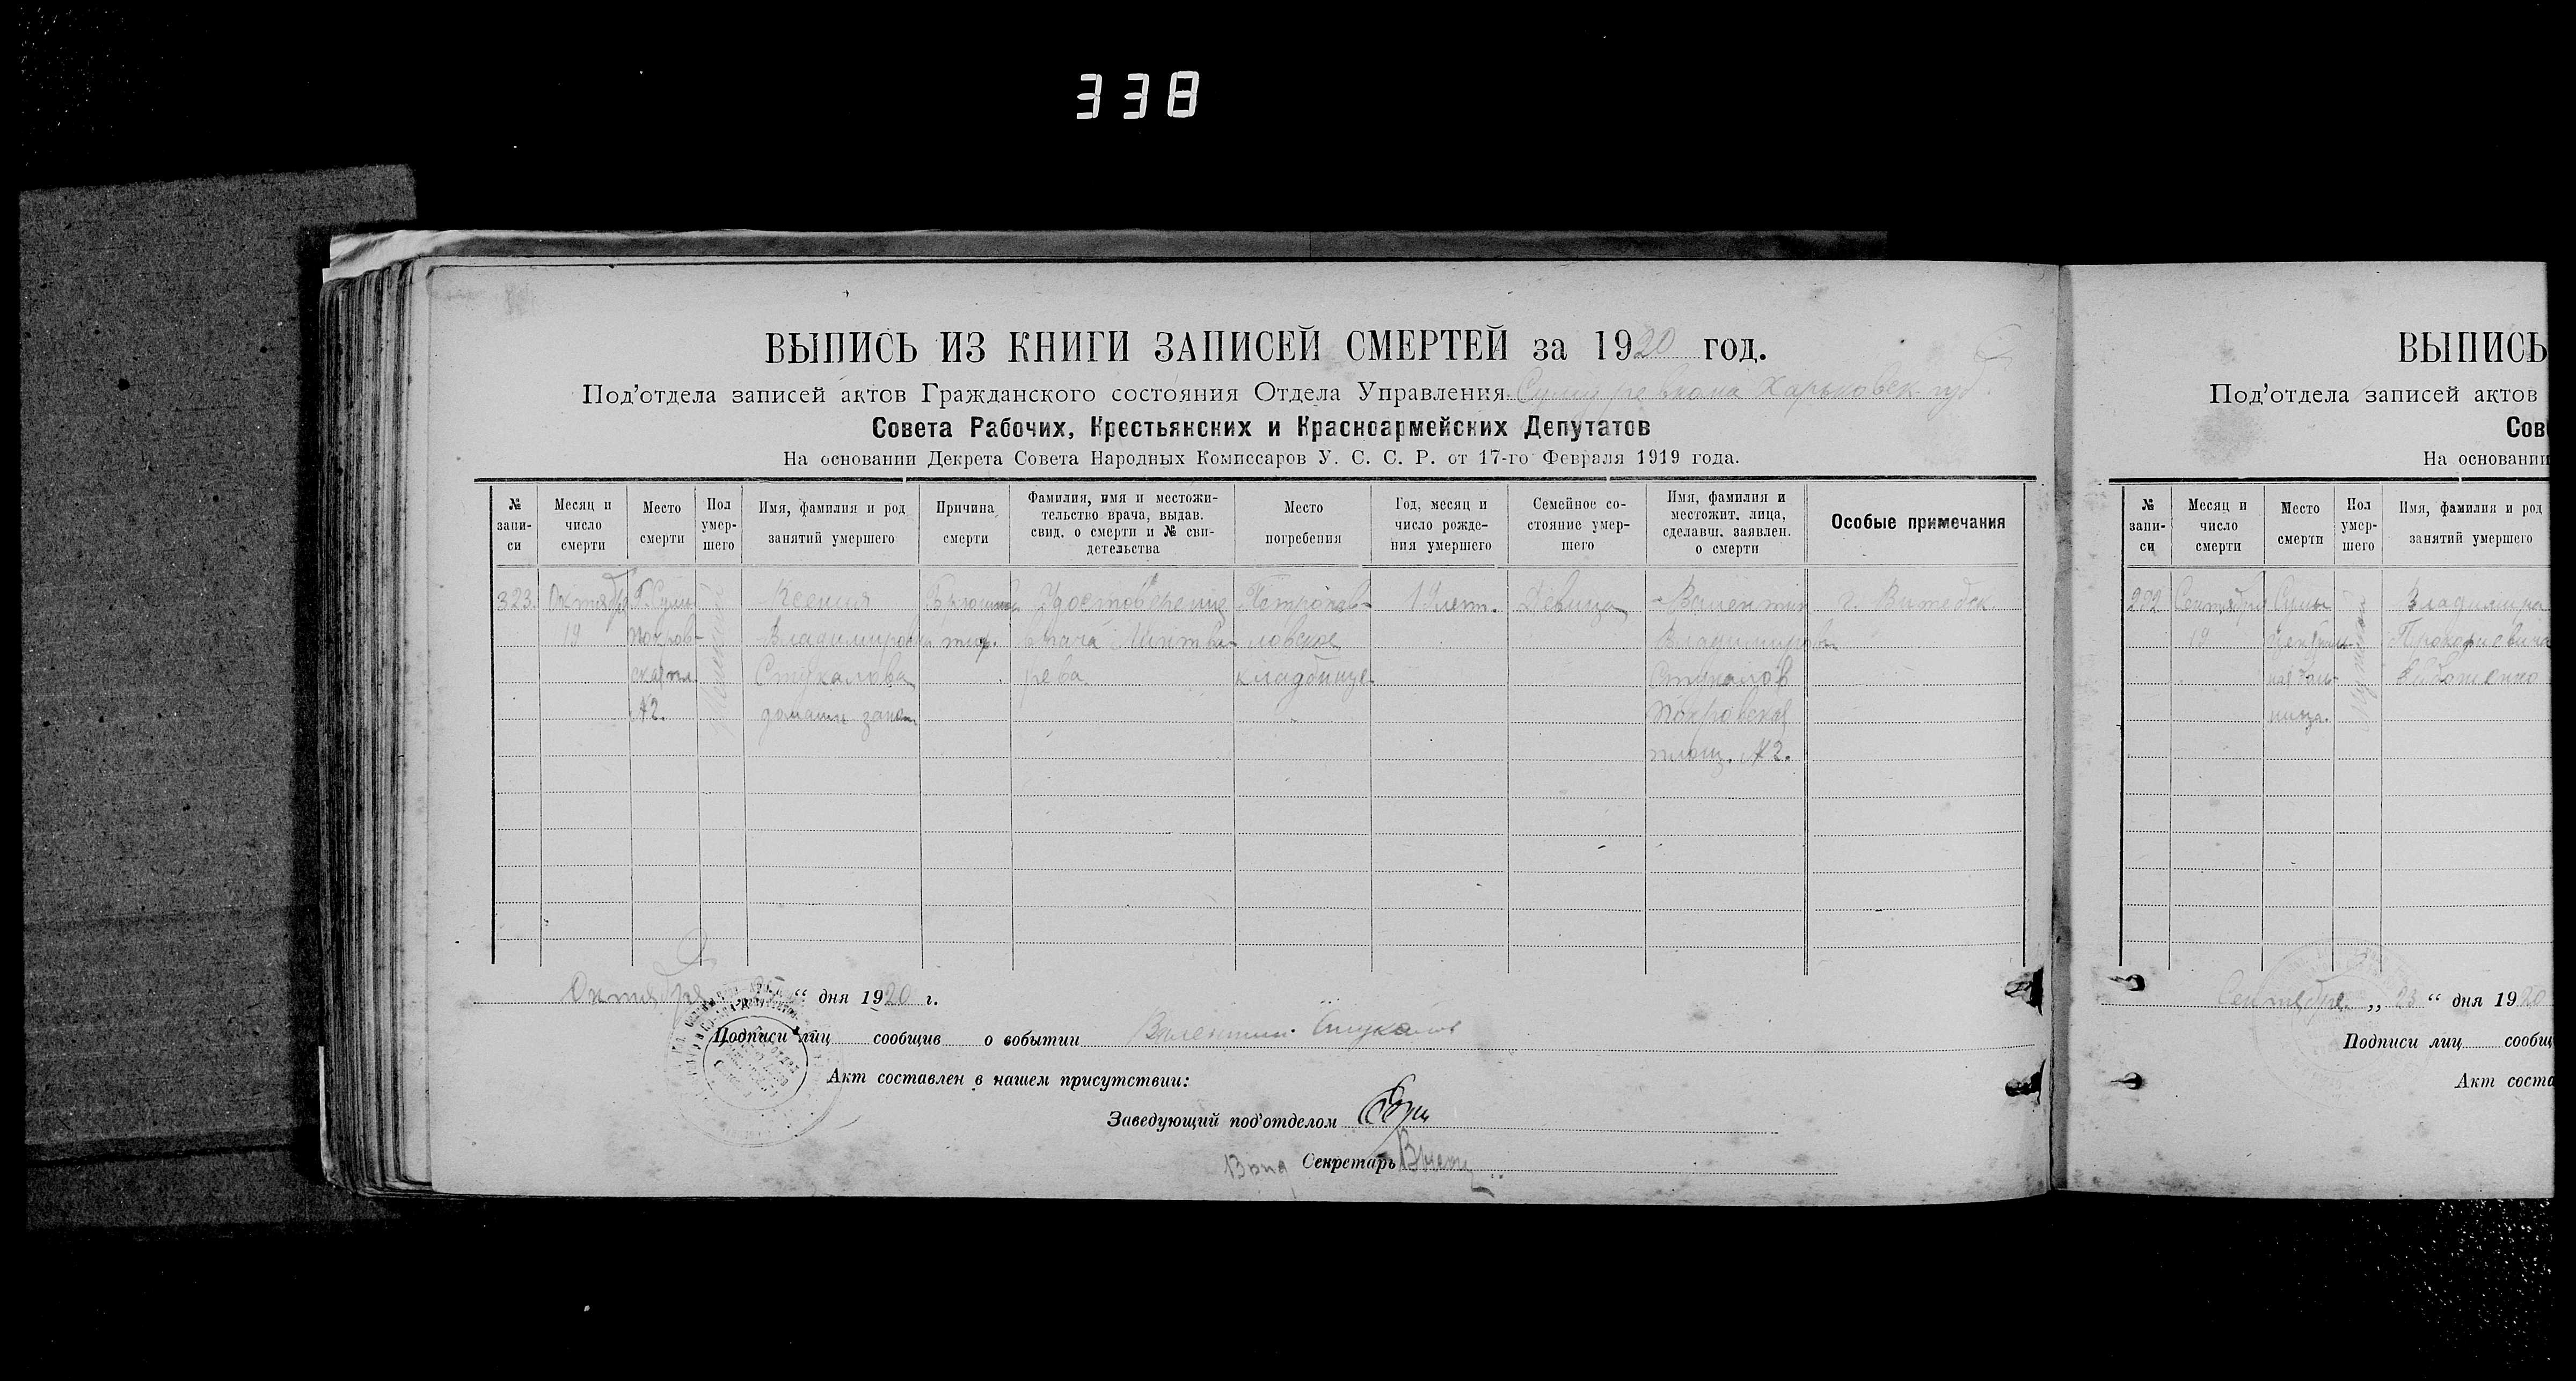 338
ВЫПИСЬ ИЗ КНИГИ ЗАПИСЕЙ СМЕРТЕЙ за 1920 год.
Под'отдела записей актов Гражданского состояния Отдела Управления Харьковск губ
Совета Рабочих, Крестьянских и Красноармейских Депутатов
На основании Декрета Совета Народных Комиссаров У. С. С. Р. от 17-го Февраля 1919 года.
№ запи-
си
Месяц и
число
смерти
Место
смерти
Пол
умер-
шего
Имя, фамилия и род
занятий умершего
Причина
смерти
Фамилия, имя и местожи-
тельство врача, выдав.
свид. о смерти и № сви-
детельства
Место
погребения
Год, месяц и
число рожде-
ния умершего
Семейное со-
стояние умер-
шего
Имя, фамилия и
местожит. лица,
сделавш. заявлен.
о смерти
Особые примечания
323.
Октября
19
Г. Сумы
Покров-
ская пл.
№2.
Женский
Ксения
Владимировна
Стукалова
домашн
Брюшной
тиф.
Удостоверение
врача
рева
Петропав-
ловское
кладбище
19 лет.
Девица
Валентин
Владимиров
Стукалов
Покровская
площ. №2.
г. Витебск.
Октября „ “ дня 1920 г.
Подписи лиц сообщив о событии Валентин Стукалов
Акт составлен в нашем присутствии:
Заведующий под'отделом
Секретарь
ВЫПИСЬ
Под'отдела записей актов
Сов
На основании
№ запи-
си
Месяц и
число
смерти
Место
смерти
Пол
умер-
шего
Имя, фамилия и род
занятий умершего
292
Сентября
19
Сумы
ница.
Мужской
Владимира
Прокофиевича
Сентября „ 23 “ дня 1920
Подписи лиц сообщ
Акт соста